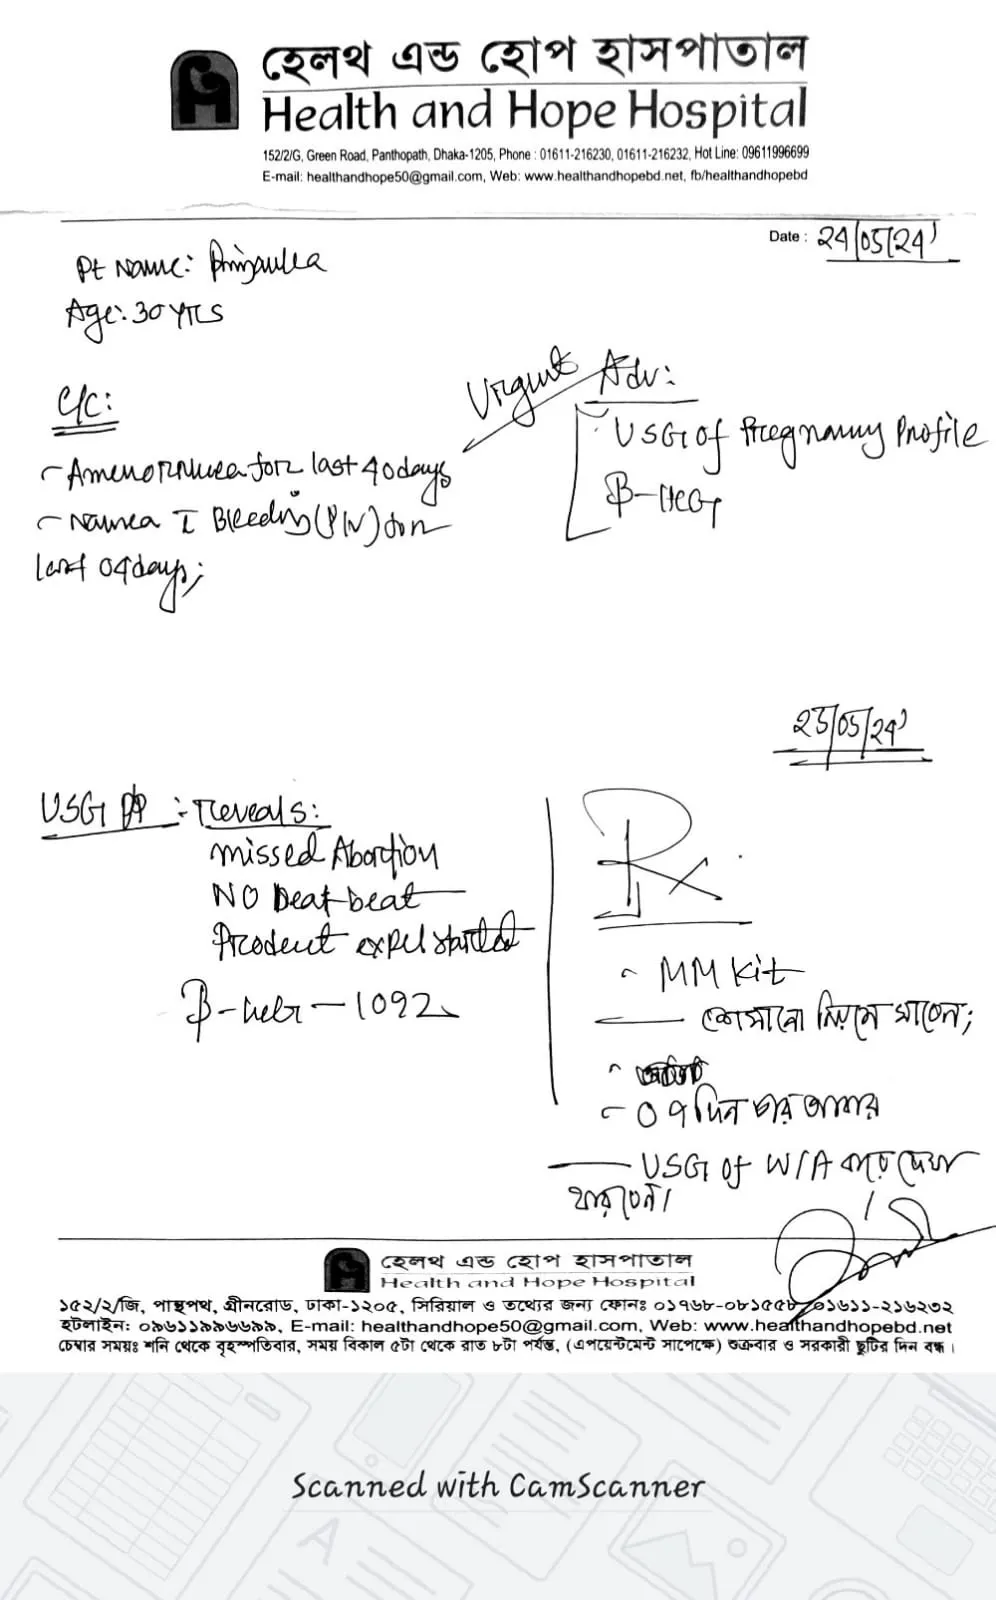 হেলথ এন্ড হোপ হাসপাতাল
Health and Hope Hospital
152/2/G, Green Road, Panthopath, Dhaka-1205, Phone : 01611-216230, 01611-216232, Hot Line: 09611996699
E-mail: healthandhope50@gmail.com, Web: www.healthandhopebd.net, fb/healthandhopebd
Date : 24/05/24
Pt Name:
Age: 30 yrs
C/C:
- Amenorrhea for last 40 days
- Nausea Bleeding (P/V) for
last 04 days;
Urgent
Adv:
USG of Pregnancy Profile
β-HCG
25/05/24
USG PP :- Reveals:
missed Abortion
NO beat
Product expel started
β-hcg - 1092
Rx
MM Kit
শেখানো নিয়মে খাবেন;
- 07 দিন পর আবার
USG of W/A করে দেখা
করবেন।
হেলথ এন্ড হোপ হাসপাতাল
Health and Hope Hospital
১৫২/২/জি, পান্থপথ, গ্রীনরোড, ঢাকা-১২০৫, সিরিয়াল ও তথ্যের জন্য ফোনঃ ০১৭৬৮-০৮১৫৫৮, ০১৬১১-২১৬২৩২
হটলাইন: ০৯৬১১৯৯৬৬৯৯, E-mail: healthandhope50@gmail.com, Web: www.healthandhopebd.net
চেম্বার সময়ঃ শনি থেকে বৃহস্পতিবার, সময় বিকাল ৫টা থেকে রাত ৮টা পর্যন্ত, (এপয়েন্টমেন্ট সাপেক্ষে) শুক্রবার ও সরকারী ছুটির দিন বন্ধ।
Scanned with CamScanner